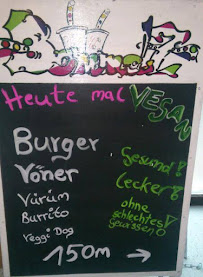 Heute mal
VEGAN
Burger
Vöner
Vürüm
Burrito
Veggi Dog
Gesund!
Lecker!
ohne
schlechtes
Gewissen!
150m →